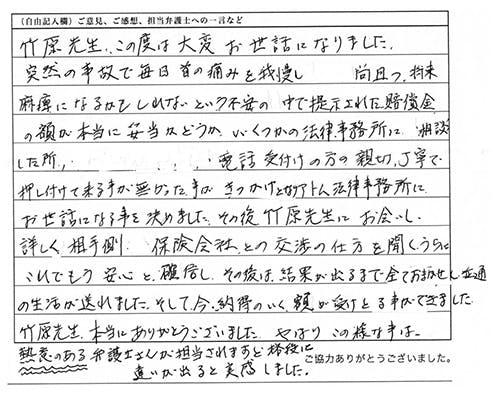 (自由記入欄)ご意見、ご感想、担当弁護士への一言など
竹原先生、この度は大変お世話になりました。
突然の事故で毎日首の痛みを我慢し 尚且つ、将来
麻痺になるかもしれないという不安の中で提示された賠償金
の額が本当に妥当かどうか、いくつかの法律事務所に、相談
した所、 電話受付けの方の親切、丁寧で
押し付けて来る事が無かった事がきっかけとなりアトム法律事務所に
お世話になる事を決めました。その後竹原先生にお会いし、
詳しく相手側 保険会社との交渉の仕方を聞くうちに
これでもう安心と、確信し、その後は、結果が出るまで全てお任せし普通
の生活が送れました。そして今、納得のいく額が受けとる事ができました。
竹原先生、本当にありがとうございました。やはりこの様な事は、
熱意のある弁護士さんが担当されますと格段に
違いが出ると実感しました。
ご協力ありがとうございました。